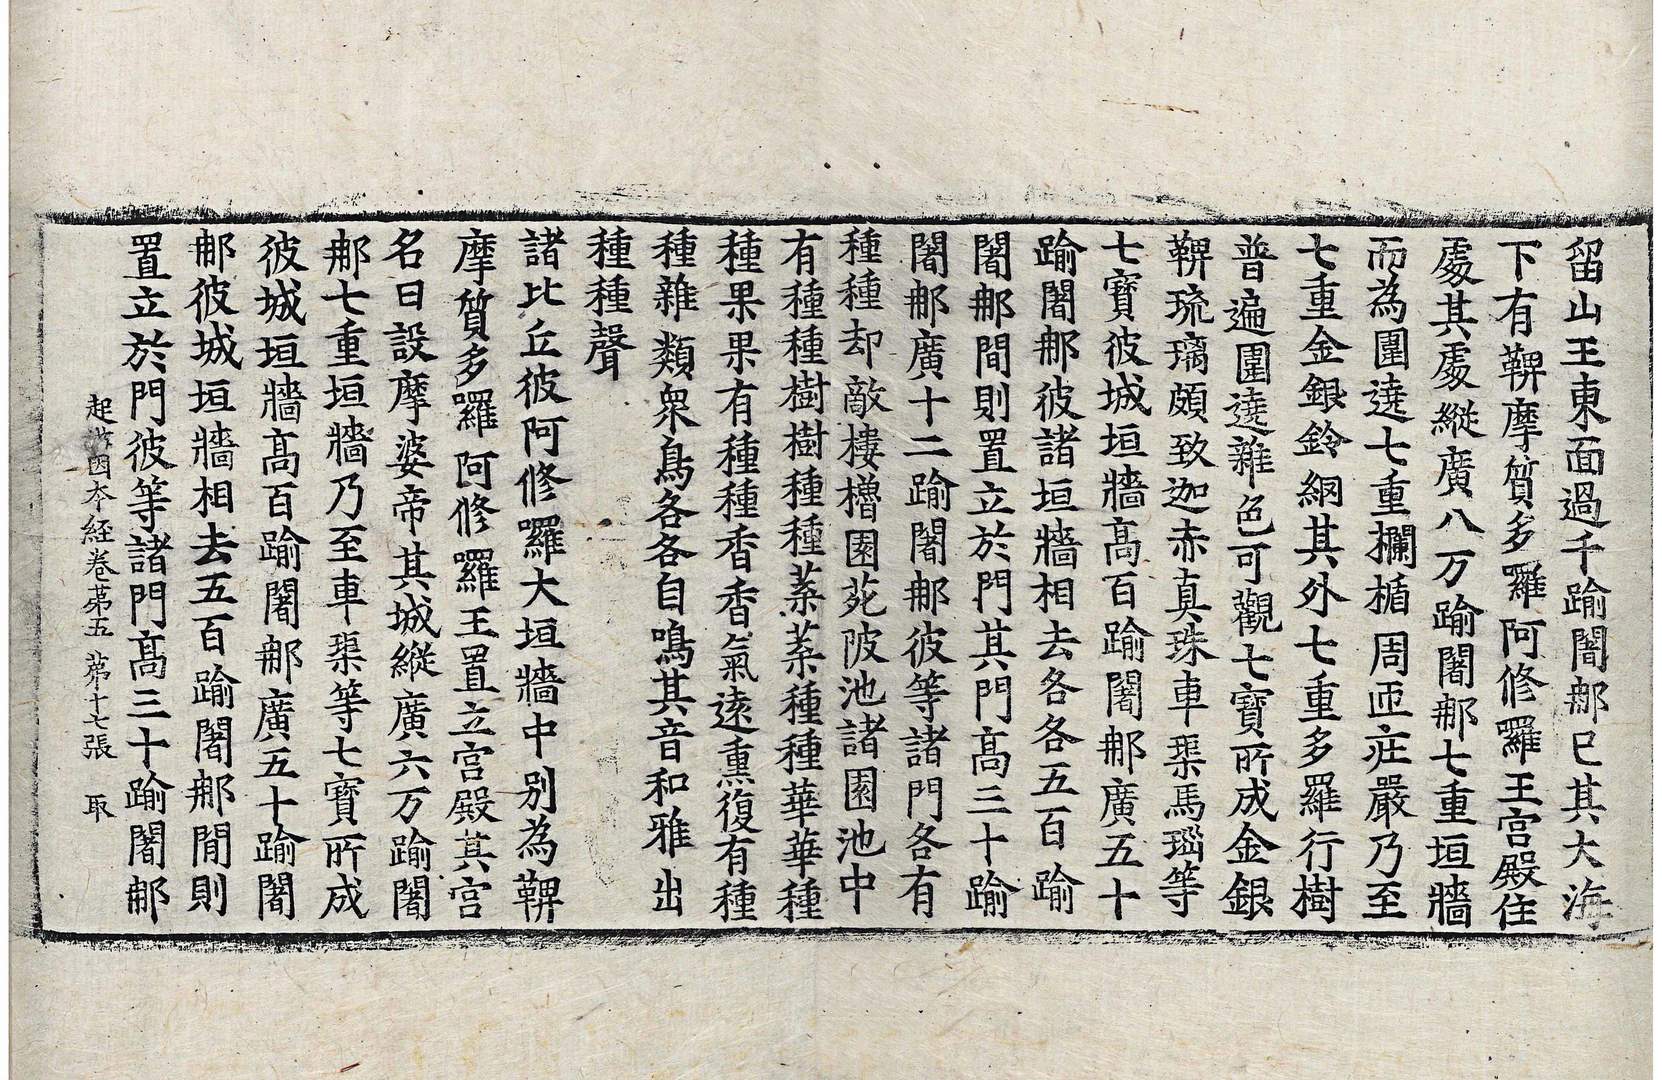 留山王東面過千踰闍郍已其大海
下有鞞摩質多羅阿修羅王宮殿住
處其處縱廣八万踰闍郍七重垣牆
而為圍遶七重欄楯周匝庄嚴乃至
七重金銀鈴網其外七重多羅行樹
普遍圍遶雜色可觀七寶所成金銀
鞞琉璃頗致迦赤真珠車渠馬瑙等
七寶彼城垣牆髙百踰闍郍廣五十
踰闍郍彼諸垣牆相去各各五百踰
闍郍間則置立於門其門髙三十踰
闍郍廣十二踰闍郍彼等諸門各有
種種却敵樓櫓園苑陂池諸園池中
有種種樹樹種種葉葉種種華華種
種果果有種種香香氣遠熏復有種
種雜類衆鳥各各自鳴其音和雅出
種種聲
諸比丘彼阿修羅大垣牆中別為鞞
摩質多羅阿修羅王置立宮殿其宮
名曰設摩婆帝其城縱廣六万踰闍
郍七重垣牆乃至車渠等七寶所成
彼城垣牆髙百踰闍郍廣五十踰闍
郍彼城垣牆相去五百踰闍郍間則
置立於門彼等諸門髙三十踰闍郍
起世因本経卷苐五 苐十七張 取